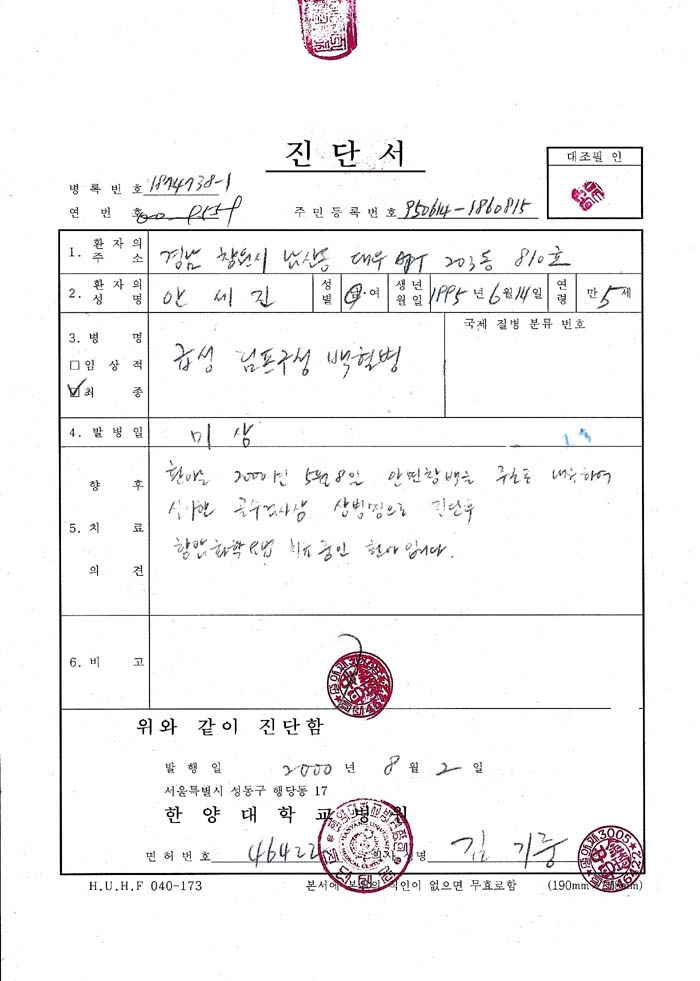 진 단 서
대조필 인
병 록 번 호 1874738-1
연 번 호 00-9559
주 민 등 록 번 호 950614-1860815
1. 환 자 의 주 소 경남 창원시 남산동 대우 APT 203동 810호
2. 환 자 의 성 명 안 세 진 성 별 남·여 생년월일 1995년 6월 14일 연 령 만 5 세
3. 병 명 급성 림프구성 백혈병 국제 질병 분류 번호
□ 임 상 적
☑ 최 종
4. 발 병 일 미 상
5. 향 후 치 료 의 견 환아는 2000년 5월 8일 안면창백을 주소로 내원하여
시행한 골수검사상 상병명으로 진단후
항암화학요법 치료중인 환아입니다.
6. 비 고
위와 같이 진단함
발 행 일 2000 년 8 월 2 일
서울특별시 성동구 행당동 17
한 양 대 학 교 병 원
면 허 번 호 46422 의사 성명 김 기 중
H.U.H.F 040-173 본서에 직인이 없으면 무효로함 (190mm